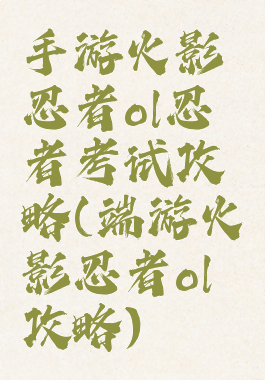 手游火影
忍者ol忍
者考试攻
略(端游火
影忍者ol
攻略)